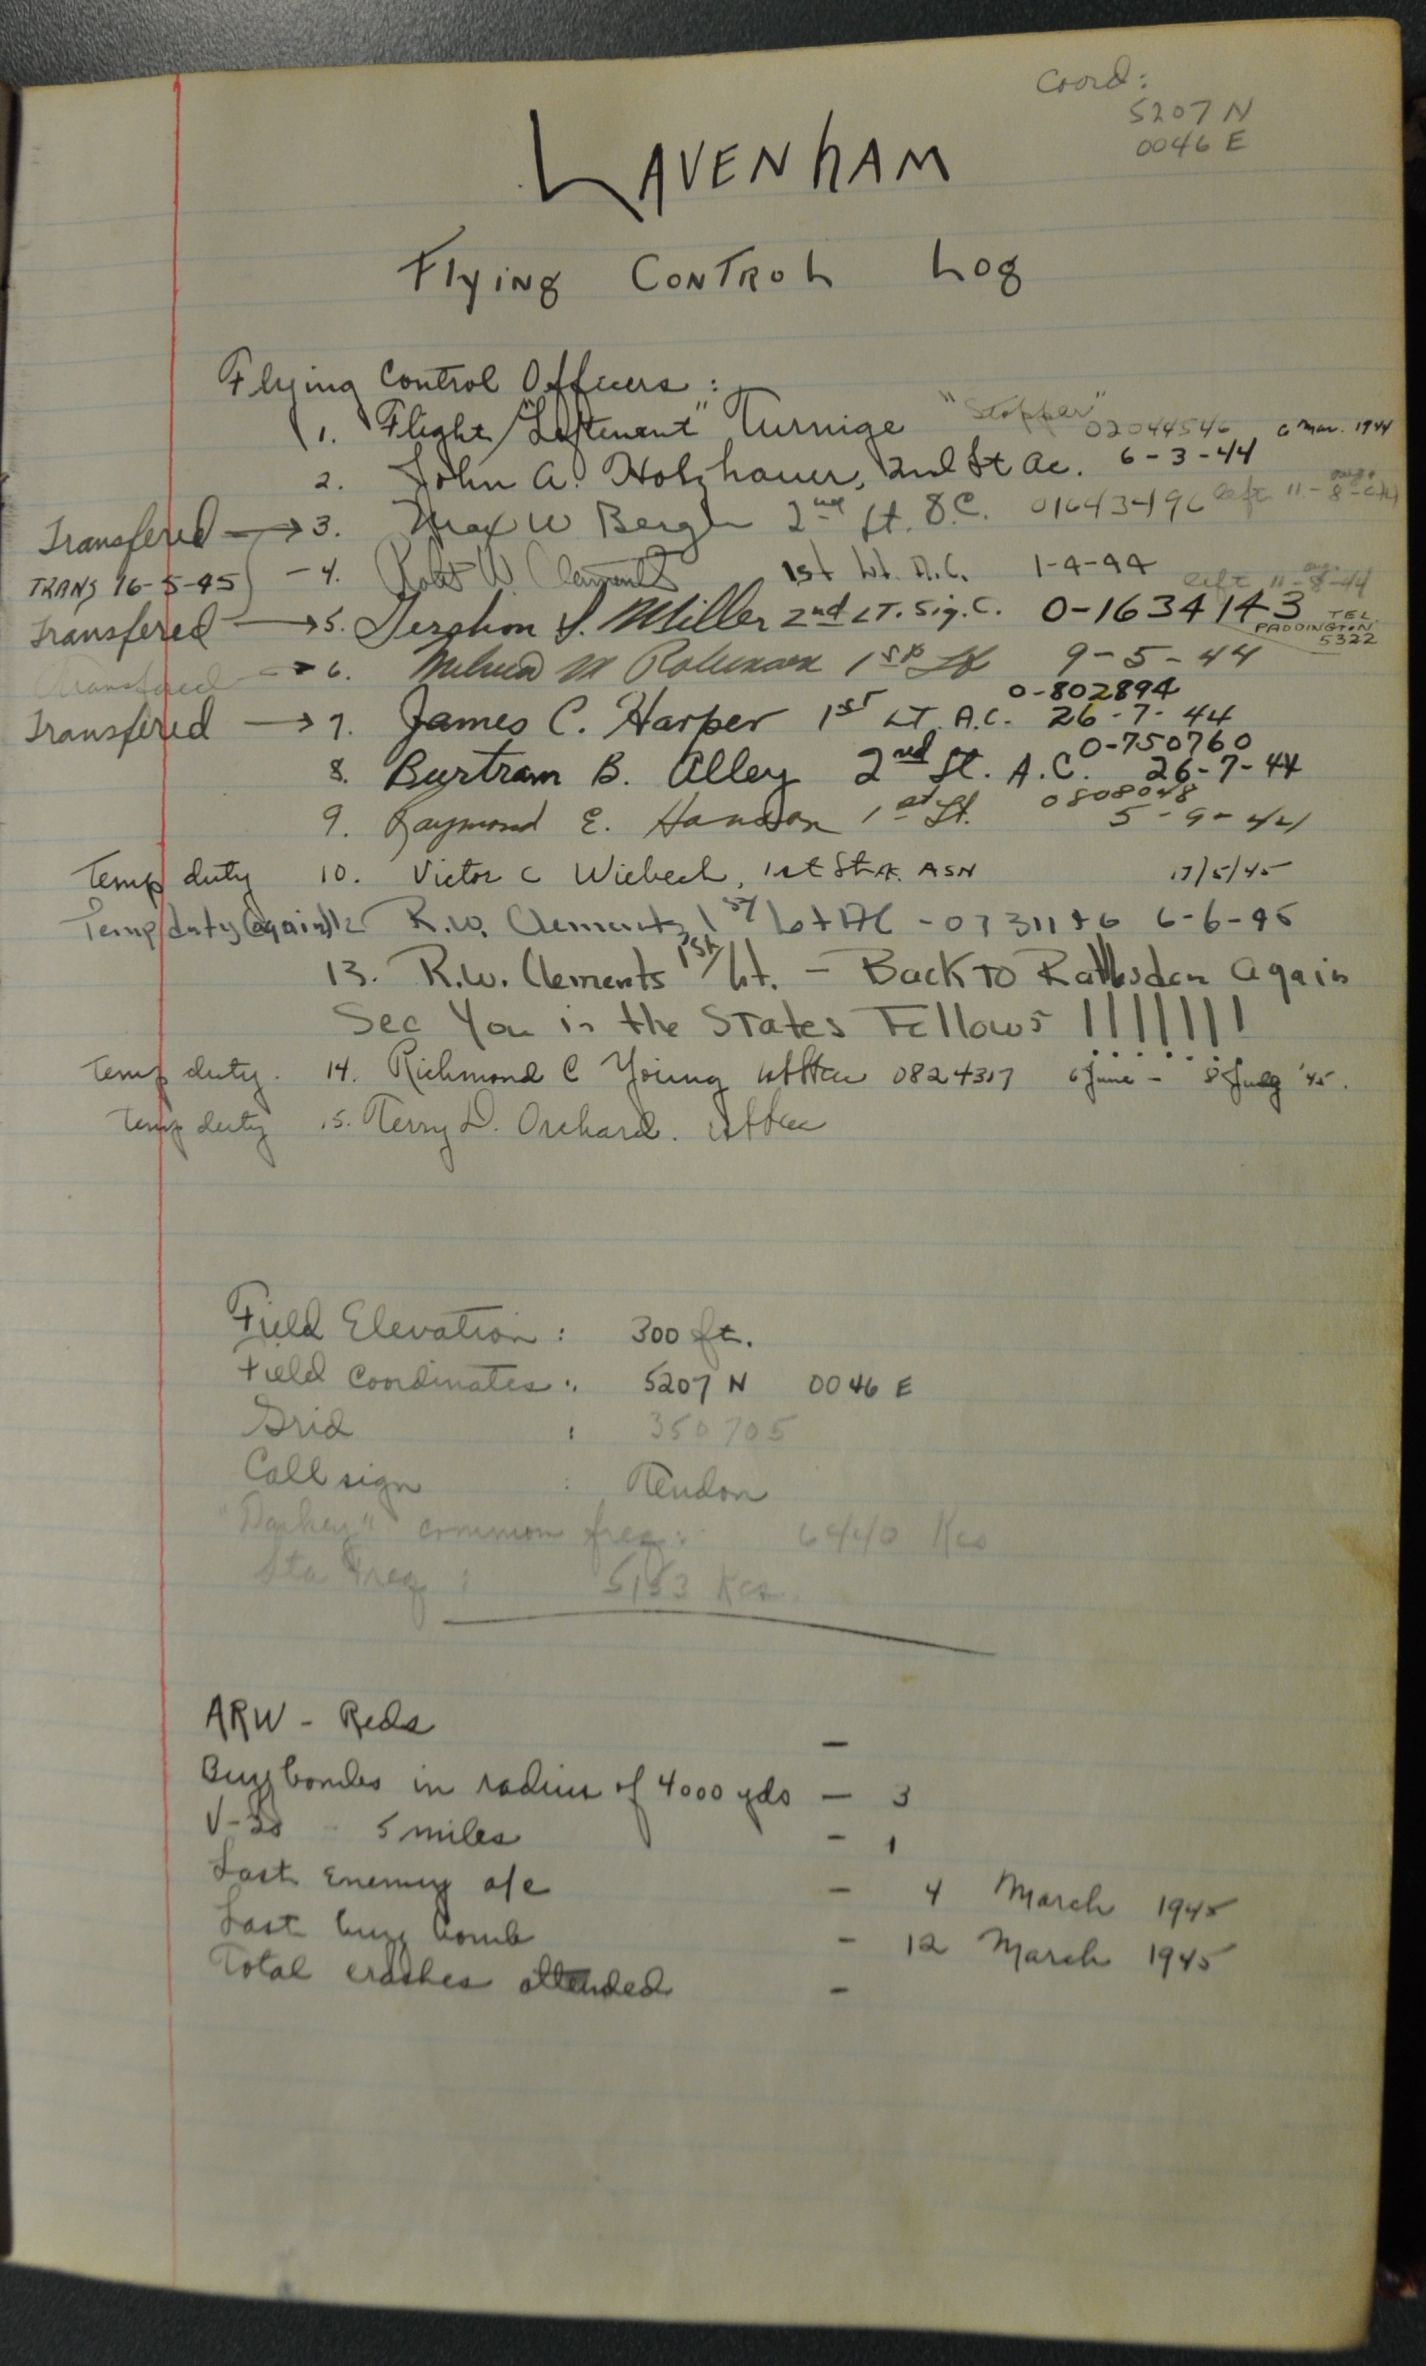 Coord:
5207 N
0046 E
LAVENhAM
Flying CONTROL Log
Flying Control Officers:
1. Flight "Leftenent" Turnige "Stopper" 02044546 6 Mar. 1944
2. John A. Holzhauer, 2nd Lt Ac. 6-3-44
Transfered → 3. Max W Bergh 2nd Lt. S.C. 01643496 left 11-8-44
TRANS 16-5-45 - 4. Robt W. Clements 1st Lt. A.C. 1-4-44
left 11-8-44
Transfered → 5. Gershon S. Miller 2nd LT. Sig. C. 0-1634143 TEL PADDINGTON 5322
Transfered → 6. M Robinson 1st Lt 9-5-44
0-802894
Transfered → 7. James C. Harper 1ST LT A.C. 26-7-44
0-750760
8. Burtram B. Alley 2nd Lt. A.C. 26-7-44
0808048
9. Raymond E. Hanson 1st Lt. 5-9-44
Temp duty 10. Victor C Wiebeck, 1st Lt ASN 17/5/45
Temp duty (again) 12 R.W. Clements, 1ST Lt AC 6-6-45
13. R.W. Clements 1ST Lt. - BACK TO Rattlesden Again
See You in the STATES Fellows !!!!!!!
Temp duty. 14. Richmond C Young 0824317 6 June - 8 July '45.
Temp duty 15. Terry D. Orchard.
Field Elevation: 300 ft.
Field Coordinates: 5207 N 0046 E
Grid : 350705
Call sign : Tendon
"Darkey" common freq: 6440 Kcs
Sta Freq: 5153 Kcs.
ARW - Reds -
Buzz bombs in radius of 4000 yds - 3
V-2s 5 miles - 1
Last Enemy a/c - 4 March 1945
Last buzz bomb - 12 March 1945
Total crashes attended -